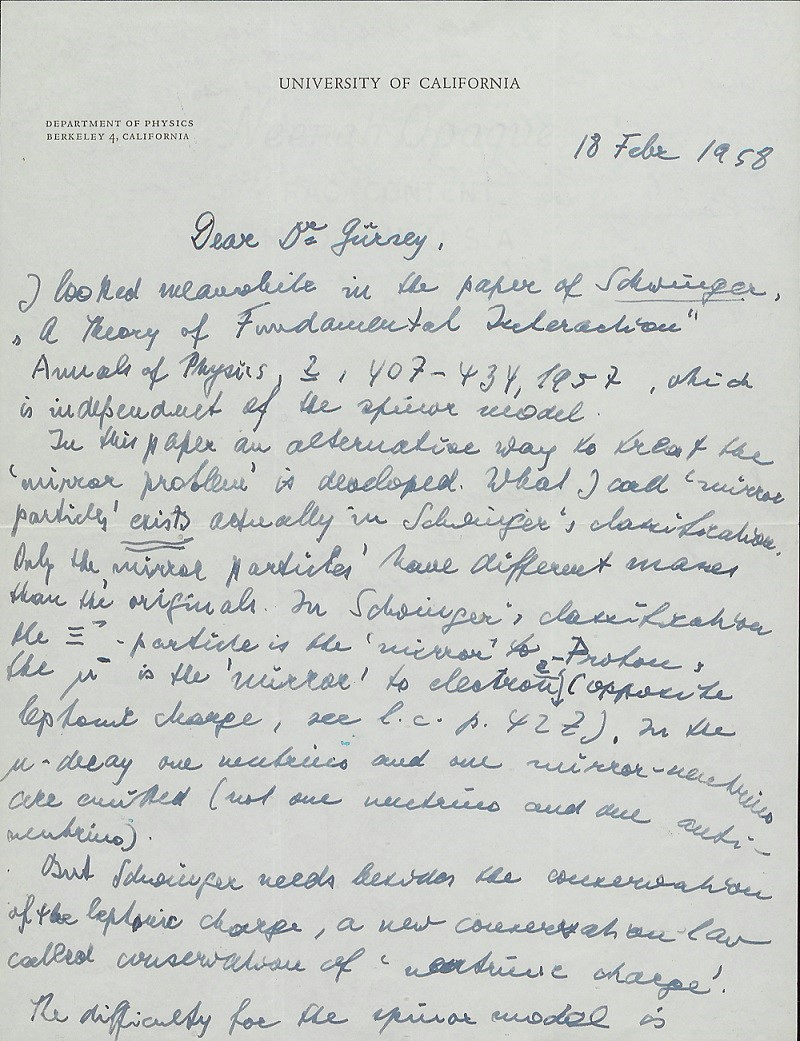 UNIVERSITY OF CALIFORNIA
DEPARTMENT OF PHYSICS
BERKELEY 4, CALIFORNIA
18 Febr 1958
Dear Dr Gürsey,
I looked meanwhile in the paper of Schwinger,
„A Theory of Fundamental Interaction"
Annals of Physics, 2, 407-434, 1957, which
is independent of the spinor model.
In this paper an alternative way to treat the
'mirror problem' is developed. What I call 'mirror
particles' exists actually in Schwinger's classification.
Only the 'mirror particles' have different masses
than the originals. In Schwinger's classification
the Ξ⁻-particle is the 'mirror' to Proton,
the μ⁻ is the 'mirror' to electron e⁻ (opposite
leptonic charge, see l.c. p. 422). In the
μ-decay one neutrino and one mirror-neutrino
are emitted (not one neutrino and one anti-
neutrino).
But Schwinger needs besides the conservation
of the leptonic charge, a new conservation law
called conservation of 'neutrinic charge'.
The difficulty for the spinor model is